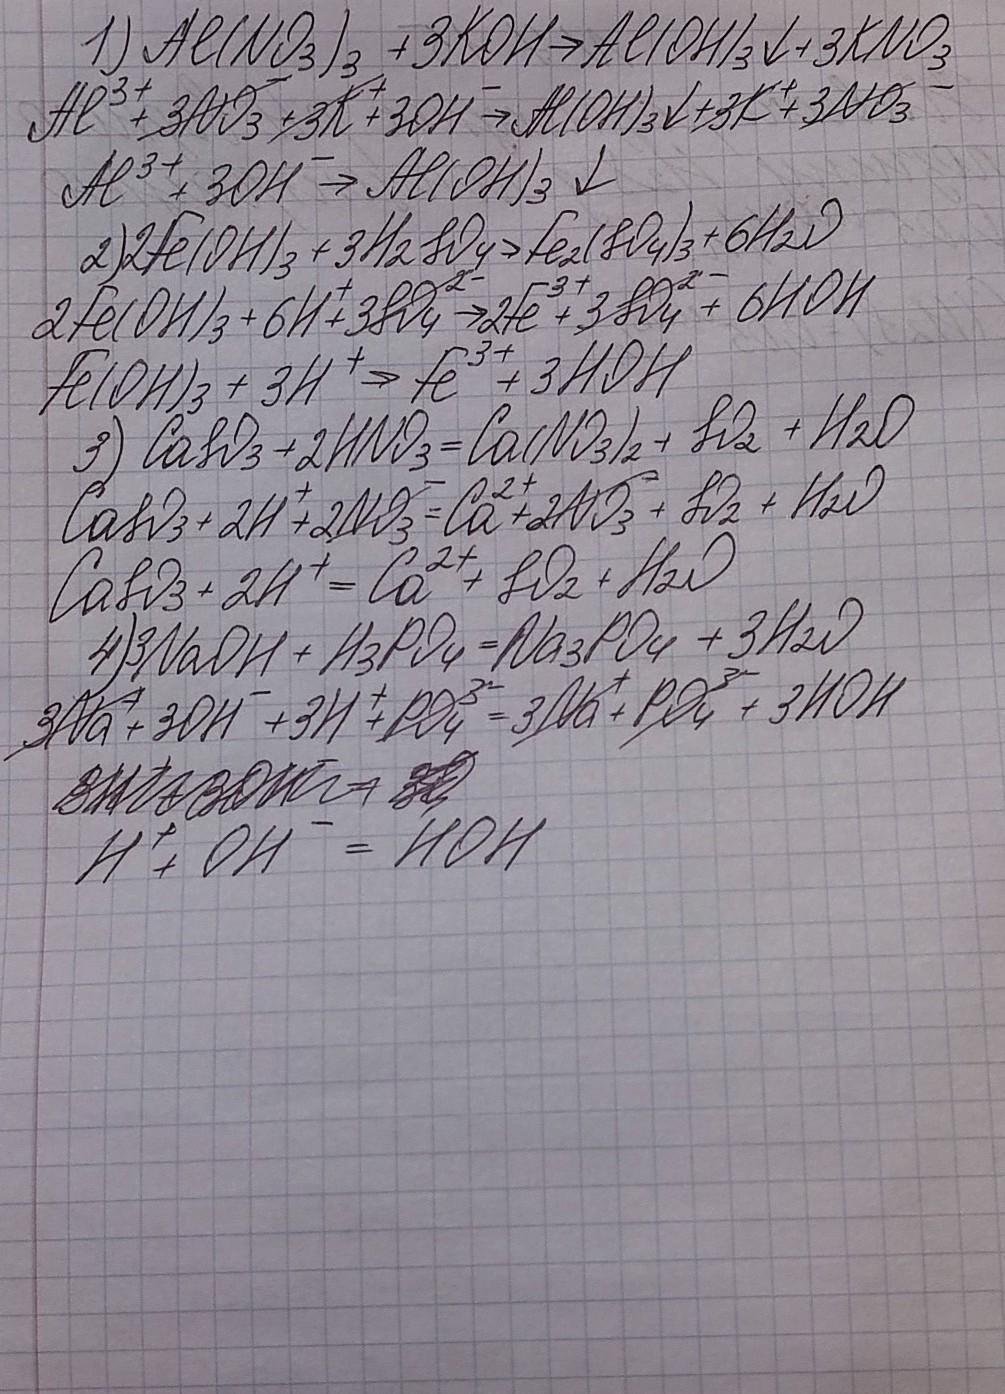 1) Al(NO₃)₃ + 3KOH → Al(OH)₃↓ + 3KNO₃
Al³⁺ + 3NO₃⁻ + 3K⁺ + 3OH⁻ → Al(OH)₃↓ + 3K⁺ + 3NO₃⁻
Al³⁺ + 3OH⁻ → Al(OH)₃ ↓
2) 2Fe(OH)₃ + 3H₂SO₄ → Fe₂(SO₄)₃ + 6H₂O
2Fe(OH)₃ + 6H⁺ + 3SO₄²⁻ → 2Fe³⁺ + 3SO₄²⁻ + 6HOH
Fe(OH)₃ + 3H⁺ → Fe³⁺ + 3HOH
3) CaSO₃ + 2HNO₃ = Ca(NO₃)₂ + SO₂ + H₂O
CaSO₃ + 2H⁺ + 2NO₃⁻ = Ca²⁺ + 2NO₃⁻ + SO₂ + H₂O
CaSO₃ + 2H⁺ = Ca²⁺ + SO₂ + H₂O
4) 3NaOH + H₃PO₄ = Na₃PO₄ + 3H₂O
3Na⁺ + 3OH⁻ + 3H⁺ + PO₄³⁻ = 3Na⁺ + PO₄³⁻ + 3HOH
H⁺ + OH⁻ = HOH